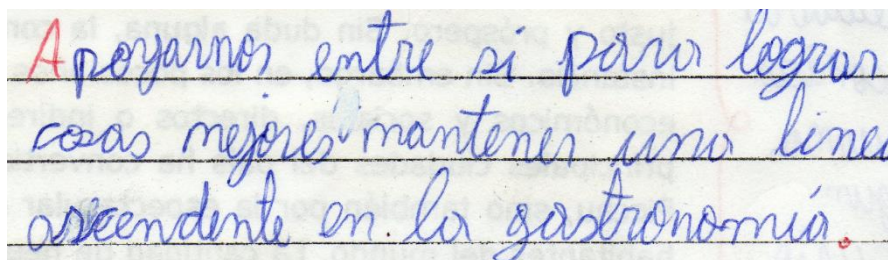 Apoyarnos entre si para lograr
cosas mejores mantener una linea
ascendente en la gastronomía.